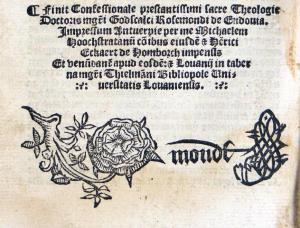 ¶ Finit Confessionale prestantissimi sacre Theologie
Doctoris mgr̃i Godscalci Rosemondi de Endouia.
Impressum Antuerpie per me Michaelem
Hoochstratanũ cõibus eiusdẽ & Hẽrici
Eckaert de Homborch impensis
Et venũtant apud eosdẽ: & Louanij in taber
na mgr̃i Thielmãni Bibliopole Uni
uersitatis Louaniensis.
monde